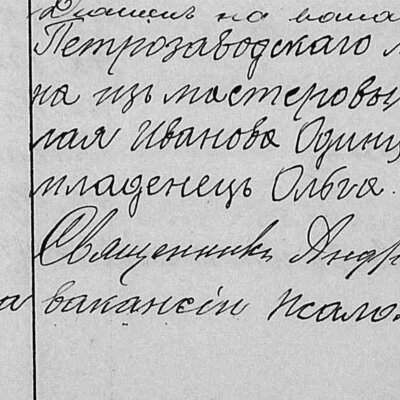 на вака
Петрозаводскаго
на изъ мастеровы
лая Иванова Один
младенецъ Ольга.
Священникъ Андр
а вакансіи псало